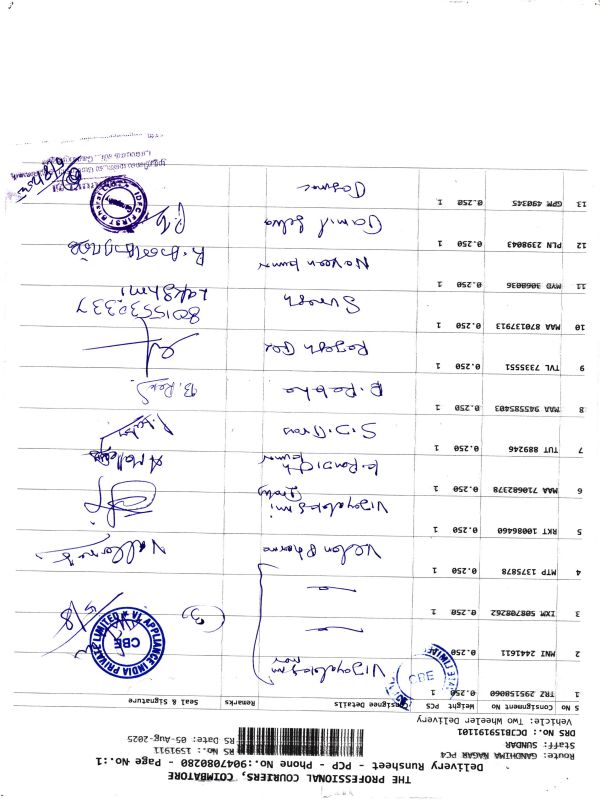 THE PROFESSIONAL COURIERS,
COIMBATORE
Delivery Runsheet - PCP - Phone No.:9047080280 - Page No.:1
Route: GANDHIMA NAGAR PC4
Staff: SUNDAR
DRS No.: DCB1591911O1
Vehicle: Two Wheeler Delivery
RS No.: 1591911
RS Date: 05-Aug-2025
S No Consignment No Weight PCS Consignee Details Remarks Seal & Signature
1 TRZ 295158060 0.250 1 Vijayalakshmi
2 MNI 2441611 0.250 1 — " —
3 IXM 508708262 0.250 1 — " — (3)
VJ APPLIANCE INDIA PRIVATE LIMITED
CBE
5/8
4 MTP 1375878 0.250 1 Velan Pharma
5 RKT 10086460 0.250 1 Vijayalakshmi
6 MAA 710682378 0.250 1 K. Ranjith kumar
7 TUT 889246 0.250 1 S.J.
8 MAA 945585403 0.250 1 B. Rekha
9 TVL 7335551 0.250 1
10 MAA 870137913 0.250 1 Suresh 8015530337
Lakshmi
11 MYD 3060036 0.250 1 Naveen kumar
12 PLN 2398043 0.250 1 Tamil Selva
IDFC FIRST Bank
13 GPM 490345 0.250 1